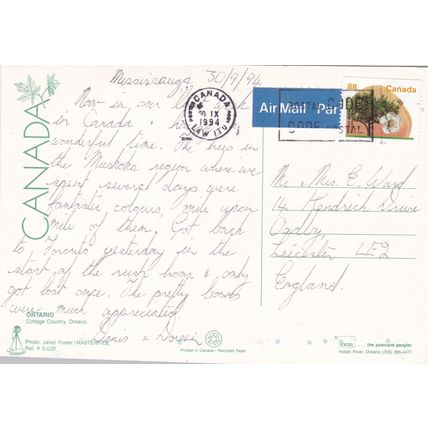 Mississauga 30/9/94
Now in our last week
in Canada &
wonderful time. The trees in
the Muskoka region where we
spent several days were
fantastic colours, mile upon
mile of them. Got back
to Toronto yesterday for the
start of the rush hour & only
got lost once. The pretty
were much appreciated.
Denis &
CANADA
CANADA
IX
1994
L4W 1T0
Air Mail Par
CODE
POSTAL
88 Canada
Mr Mrs. E. Ward
14
Oadby
Leicester LE2
England.
ONTARIO
Cottage Country, Ontario.
Photo: Janet Foster/MASTERFILE
Ref. # S-030
Printed in Canada / Recycled Paper
EXCEL ... the postcard people!
Indian River, Ontario (705) 295-4477